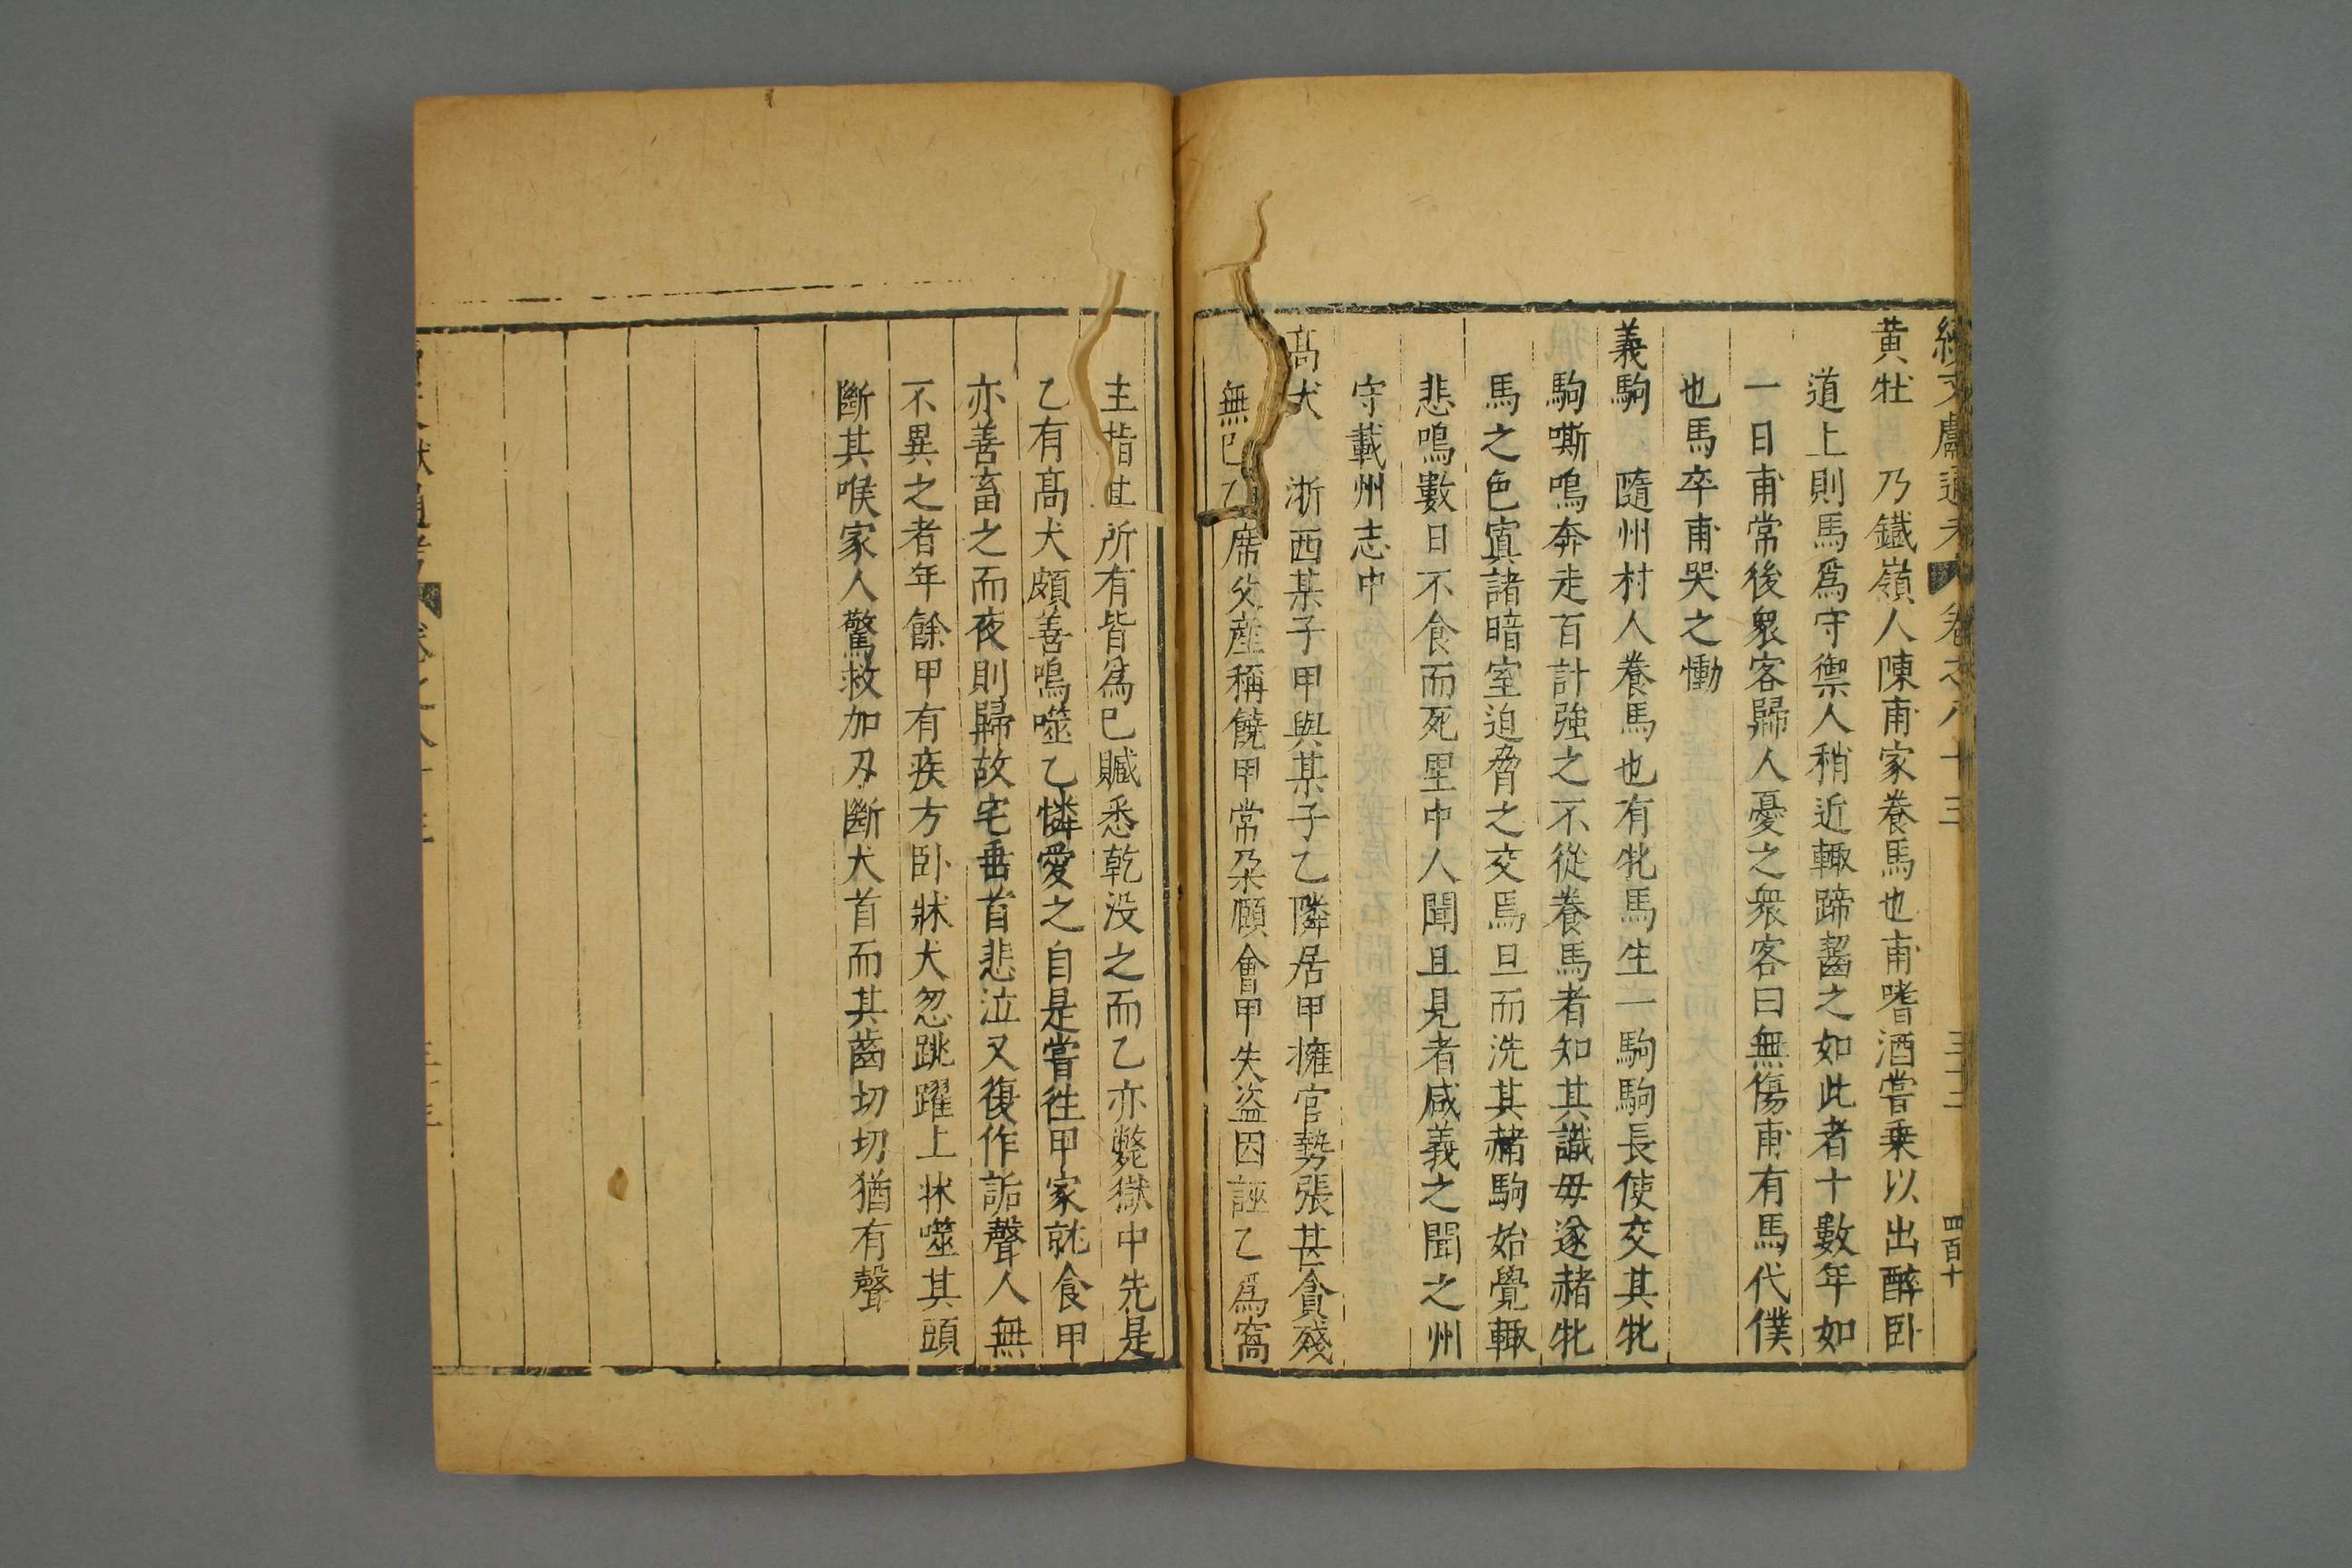 續文獻通考 卷之八十三 三十三 四百十
黃牡 乃鐵嶺人陳甫家養馬也甫嗜酒嘗乗以出醉卧
道上則馬爲守禦人稍近輒蹄齧之如此者十數年如
一日甫常後衆客歸人憂之衆客曰無傷甫有馬代僕
也馬卒甫哭之慟
義駒 隨州村人養馬也有牝馬生一駒駒長使交其牝
駒嘶鳴奔走百計強之不從養馬者知其識母遂赭牝
馬之色寘諸暗室迫脅之交焉旦而洗其赭駒始覺輒
悲鳴數日不食而死里中人聞且見者咸義之聞之州
守載州志中
高犬 浙西某子甲與某子乙隣居甲擁官勢張甚貪殘
無巳乙席父産稱饒甲常朶頤會甲失盗因誣乙爲窩
主指其所有皆爲巳贓悉乾没之而乙亦斃獄中先是
乙有高犬頗善鳴噬乙憐愛之自是嘗徃甲家就食甲
亦善畜之而夜則歸故宅垂首悲泣又復作詬聲人無
不異之者年餘甲有疾方卧牀犬忽跳躍上牀噬其頭
斷其喉家人驚救加刃斷犬首而其齒切切猶有聲